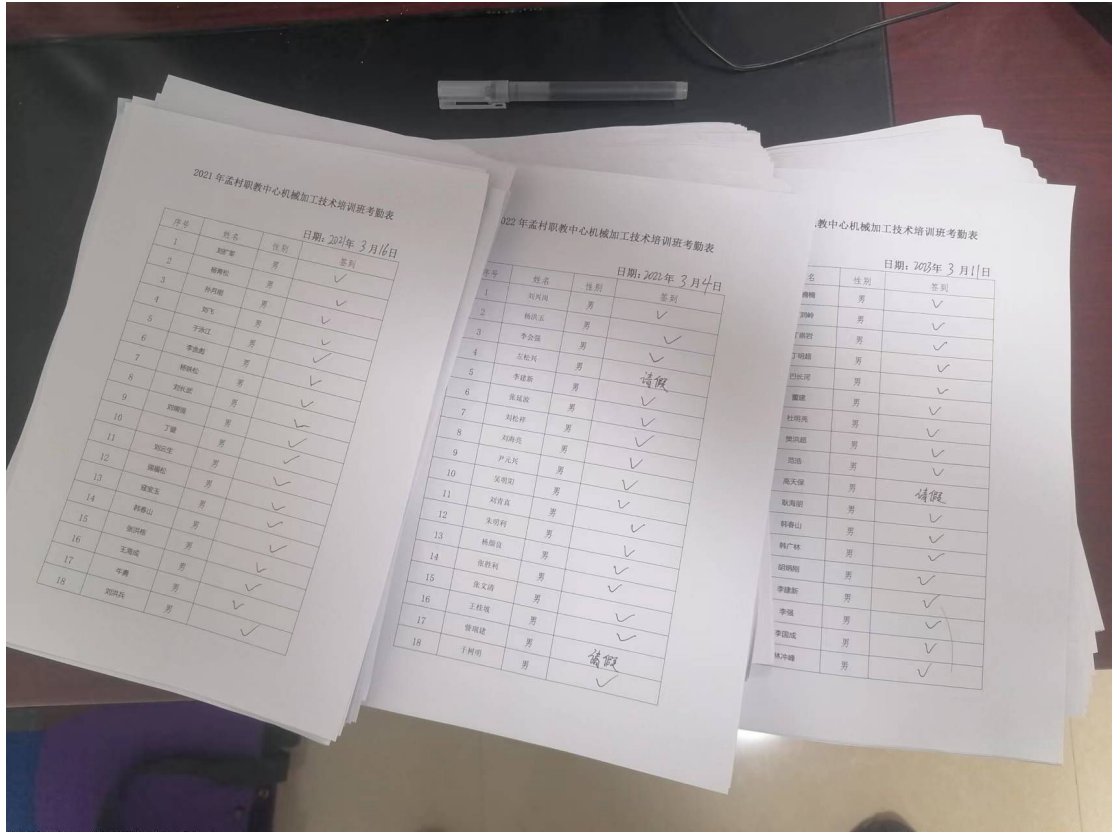 2021 年孟村职教中心机械加工技术培训班考勤表
日期: 2021年 3 月16日
序号 姓名 性别 签到
1 男 ✓
2 杨青松 男 ✓
3 孙月刚 男 ✓
4 刘飞 男 ✓
5 于泳江 男 ✓
6 李金彪 男 ✓
7 杨铁松 男 ✓
8 刘长武 男 ✓
9 男 ✓
10 丁健 男 ✓
11 男 ✓
12 男 ✓
13 男 ✓
14 韩春山 男 ✓
15 张洪彬 男 ✓
16 王海成
17 牛勇
18 刘洪兵 男 ✓
022 年孟村职教中心机械加工技术培训班考勤表
日期: 2022年 3 月4日
序号 姓名 性别 签到
1 男 ✓
2 杨洪玉 男 ✓
3 李会强 男 ✓
4 左松兴 男 请假
5 李建新 男 ✓
6 张延波 男 ✓
7 刘松梓 男 ✓
8 刘海亮 男 ✓
9 尹元兴 男 ✓
10 吴明阳 男 ✓
11 刘青喜 男 ✓
12 朱明利 男 ✓
13 杨俊良 男 ✓
14 张胜利 男 ✓
15 张文清 男 ✓
16 王桂城 男 ✓
17 曾瑞建 男 请假
18 于树明 男 ✓
教中心机械加工技术培训班考勤表
日期: 2023年 3 月11日
名 性别 签到
男 ✓
男 ✓
男 ✓
丁明超 男 ✓
巴长河 男 ✓
董建 男 ✓
杜明亮 男 ✓
樊洪超 男 ✓
范浩 男 ✓
高天保 男 请假
耿海朋 男 ✓
韩春山 男 ✓
韩广林 男 ✓
胡炳刚 男 ✓
李建新 男 ✓
李强 男 ✓
李国成 男 ✓
林冲峰 男 ✓